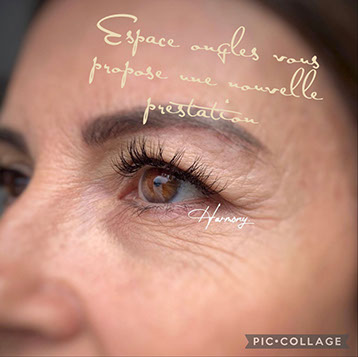 Espace ongles vous
propose une nouvelle
prestation
Harmony
PIC•COLLAGE